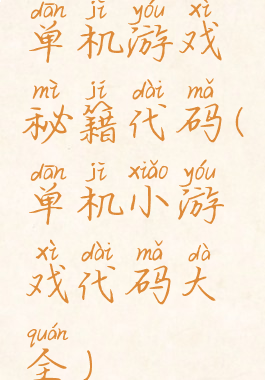 dān jī yóu xì
单机游戏
mì jí dài mǎ
秘籍代码(
dān jī xiǎo yóu
单机小游
xì dài mǎ dà
戏代码大
quán
全)